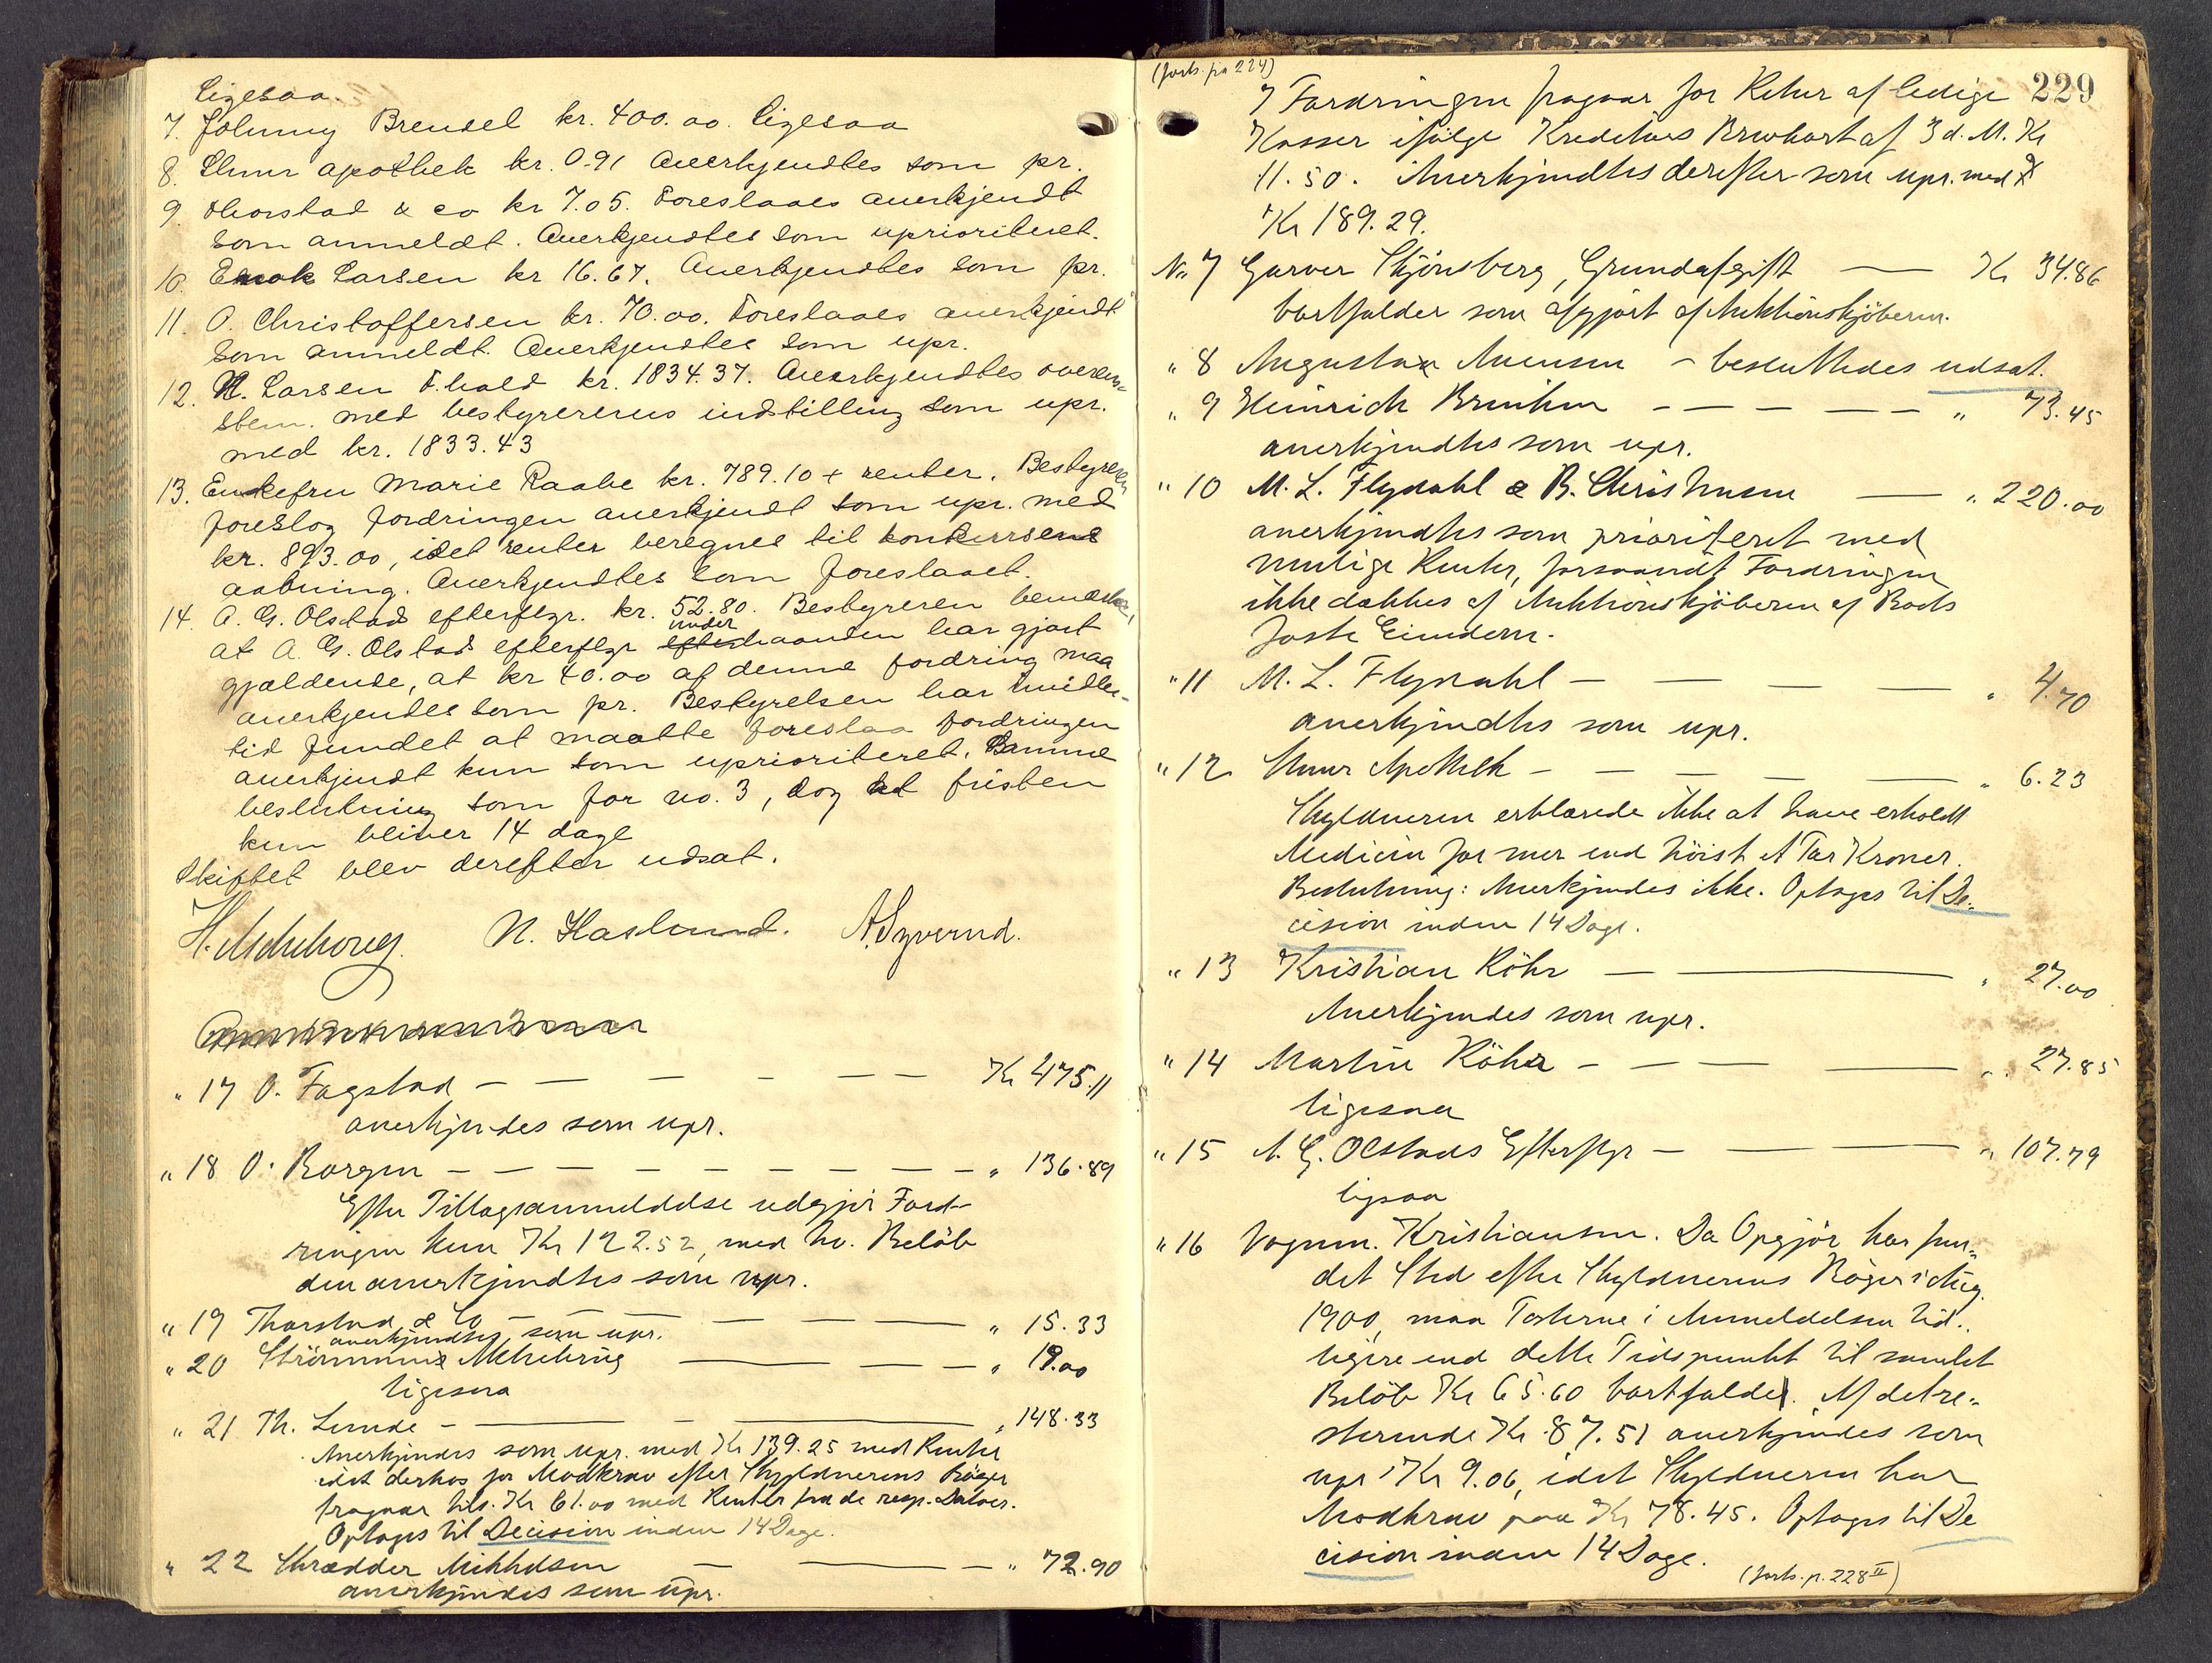 ligesaa.
7. Johnny Brendel kr. 400.00. ligesaa
8. Elmer apothek kr. 0.91 Anerkjendtes som pr.
9. Thorstad & co kr 7.05. Foreslaaes anerkjendt
som anmeldt. Anerkjendtes som uprioriteret.
10. Enok Larsen kr 16.67. Anerkjendtes som pr.
11. O. Christoffersen kr. 70.00. Foreslaaes anerkjendt
som anmeldt. Anerkjendtes som upr.
12. N. Larsen F.hald kr. 1834.37. Anerkjendtes overens-
stem. med bestyrerens indstilling som upr.
med kr. 1833.43
13. Enkefru Marie Raabe kr. 789.10 + renter. Bestyreren
foreslog fordringen anerkjendt som upr. med
kr. 893.00, idet renter beregnes til konkursens
aabning. Anerkjendtes som foreslaaet.
14. A. G. Olstads efterflgr. kr. 52.80. Bestyreren bemærker,
at A. G. Olstads efterflgr under haanden har gjort
gjældende, at kr 40.00 af denne fordring maa
anerkjendes som pr. Bestyrelsen har imidler-
tid fundet at maatte foreslaa fordringen
anerkjendt kun som uprioriteret. Samme
beslutning som for no. 3, dog at fristen
kun bliver 14 dage
Skiftet blev derefter udsat.
N. Haslund.
" 17 O. Fagstad — — — — — Kr 475.11
anerkjendes som upr.
" 18 O. Borgen — — — — — " 136.89
Efter Tillægsanmeldelse udgjør Ford-
ringen kun Kr 122.52, med hv. Beløb
den anerkjendtes som upr.
" 19 Thorstad & Co — — — — " 15.33
anerkjendtes som upr.
" 20 Strømmens — — — " 19.00
ligesaa
" 21 Th. Lunde — — — " 148.33
Anerkjendes som upr. med Kr 139.25 med Renter
idet derhos for Modkrav efter Skyldnerens Bøger
fragaar tils. Kr 61.00 med Renter fra de resp. Datoer.
Optages til Decision inden 14 Dage.
" 22 Skrædder Mikkelsen — — — " 72.90
anerkjendes som upr.
(forts. fra 224)
229
I Fordringen fragaar for Retur af ledige
Kasser ifølge Kreditors Brevkort af 3 d. M. Kr
11.50. Anerkjendtes derefter som upr. med
Kr 189.29.
No 7 Garver Skjønsberg, Grundafgift — Kr 34.86
bortfalder som afgjort af Auktionskjøberen.
" 8 Augusta Amunsen – besluttedes udsat.
" 9 Heinrich — — — — " 73.45
anerkjendtes som upr.
" 10 M. L. Flyndahl & B. Christensen — " 220.00
anerkjendtes som prioriteret med
mulige Renter, forsaavidt Fordringen
ikke dækkes af Auktionskjøberen af Boets
faste Eiendom.
" 11 M. L. Flyndahl — — — — " 4.70
anerkjendtes som upr.
" 12 Elmer Apothek — — — — " 6.23
Skyldneren erklærede ikke at have erholdt
Medicin for mer end høist et Par Kroner.
Beslutning: Anerkjendes ikke. Optages til De-
cision inden 14 Dage.
" 13 Kristian Röhr — — " 27.00
Anerkjendes som upr.
" 14 Martin Röhr — — — " 27.85
ligesaa
" 15 A. G. Olstads Efterflgr — — — " 107.79
ligesaa
" 16 Vognm. Kristiansen. Da Opgjør har fun-
det Sted efter Skyldnerens Bøger i Aug.
1900, maa Posterne i Anmeldelsen tid-
ligere end dette Tidspunkt til samlet
Beløb Kr 65.60 bortfalde. Af det re-
sterende Kr. 87.51 anerkjendes som
upr Kr 9.06, idet Skyldneren har
Modkrav paa Kr 78.45. Optages til De
cision inden 14 Dage.
(forts. p. 228 II)